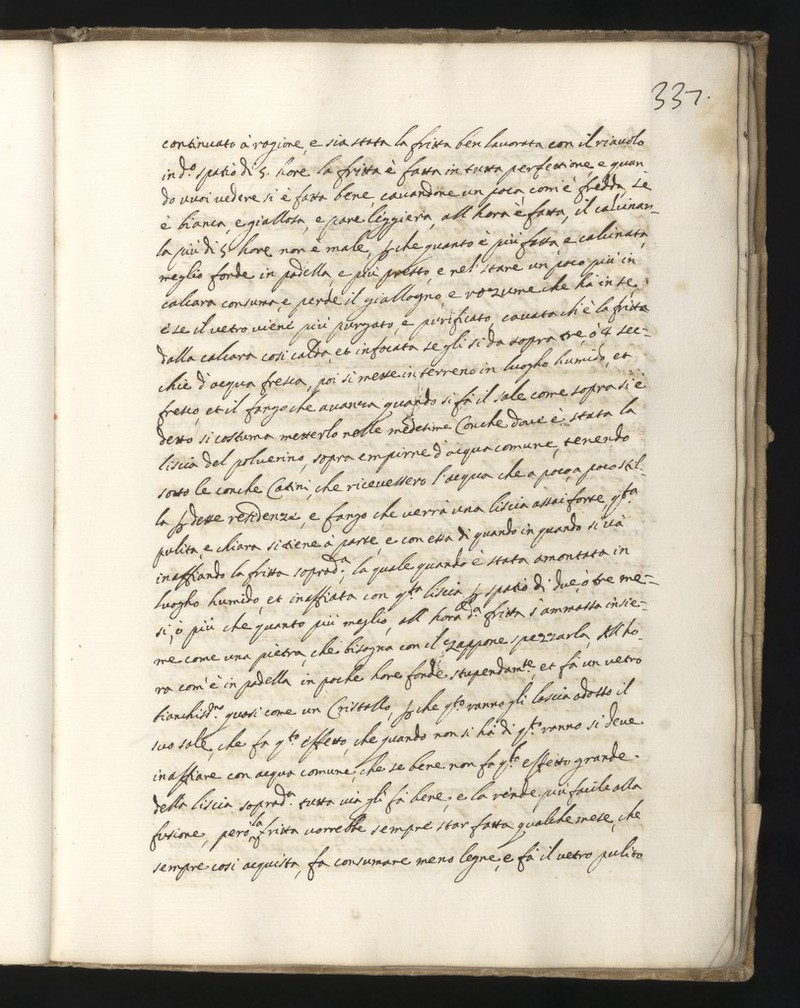 337.
continuato à ragione, e sia stata la fritta ben lavorata con il riavolo
in d.º spatio di 5. hore la fritta è fatta in tutta perfettione, e quan-
do vuoi vedere si è fatta bene, cavandone un poca, com'è fredda, se
è bianca, e giallosa, e pare leggiera, all'hora è fatta, il calcinar-
la più di 5 hore non è male, p che quanto è più fatta e calcinata,
meglio fonde in padella, e più presto, e nel stare un poco più in
calcara consuma, e perde il giallogno e rozzume che hà in se,
e se il vetro viene più purgato, e purificato cavata ch'è la fritta
dalla calcara cosi calda, et infocata se gli si da sopra tre, ò 4 sec-
chie d'acqua fresca, poi si mette in terreno in luogho humido, et
fresco, et il fango che avanza quando si fà il sale come sopra si è
detto si costuma metterlo nelle medesime Conche dove è stata la
liscia del polverino, sopra empirne d'acqua comune, tenendo
sotto le conche Catini, che ricevessero l'acqua che a poco, a poco stil-
la p dette residenze, e fango che verrà una liscia assai forte q.ta
pulita, e chiara si tiene à parte, e con essa di quando in quando si và
inaffiando la fritta soprad.ª, la quale quando è stata amontata in
luogho humido, et inaffiata con q.ta liscia p spatio di due, ò tre me-
si, ò più che quanto più meglio, all'hora d.ª fritta s'ammassa insie-
me come una pietra, che bisogna con il zappone spezzarla, All'ho-
ra com'è in padella in poche hore fonde stupendam.te, et fà un vetro
bianchiss.º quasi come un Cristallo, p che q.to ranno gli lascia adosso il
suo sale, che fa q.to effetto, che quando non si hà di q.to ranno si deve
inaffiare con acqua comune, che se bene non fa q.l effetto grande
della liscia soprad.ª tutta via gli fà bene e la rende più facile alla
fusione, però la fritta vorrebbe sempre star fatta qualche mese, che
sempre cosi acquista, fa consumare meno legne, e fà il vetro pulito